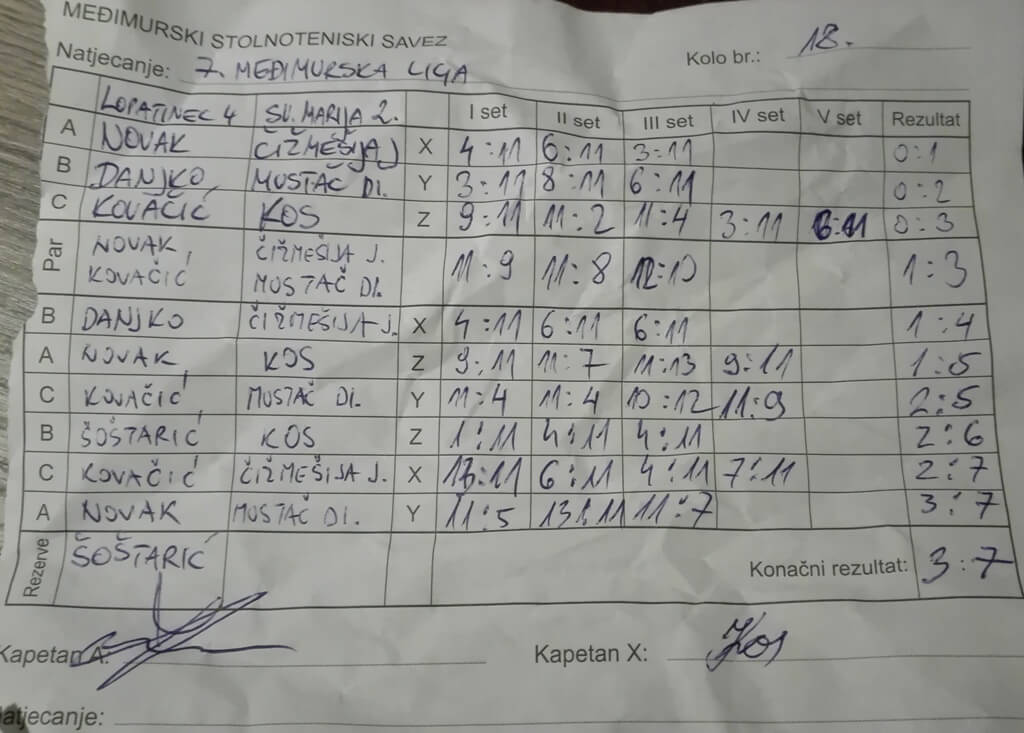 MEĐIMURSKI STOLNOTENISKI SAVEZ
Natjecanje: 7. MEĐIMURSKA LIGA Kolo br.: 18.
LOPATINEC 4 SV. MARIJA 2. I set II set III set IV set V set Rezultat
A NOVAK ČIŽMEŠIJA J X 4:11 6:11 3:11 0:1
B DANJKO MUSTAČ DI. Y 3:11 8:11 6:11 0:2
C KOVAČIĆ KOS Z 9:11 11:2 11:4 3:11 6:11 0:3
Par NOVAK, KOVAČIĆ ČIŽMEŠIJA J. MUSTAČ DI. 11:9 11:8 12:10 1:3
B DANJKO ČIŽMEŠIJA J. X 4:11 6:11 6:11 1:4
A NOVAK KOS Z 9:11 11:7 11:13 9:11 1:5
C KOVAČIĆ MUSTAČ DI. Y 11:4 11:4 10:12 11:9 2:5
B ŠOŠTARIĆ KOS Z 1:11 4:11 4:11 2:6
C KOVAČIĆ ČIŽMEŠIJA J. X 13:11 6:11 4:11 7:11 2:7
A NOVAK MUSTAČ DI. Y 11:5 13:11 11:7 3:7
Rezerve ŠOŠTARIĆ Konačni rezultat: 3:7
Kapetan A: Kapetan X: Kos
Natjecanje: